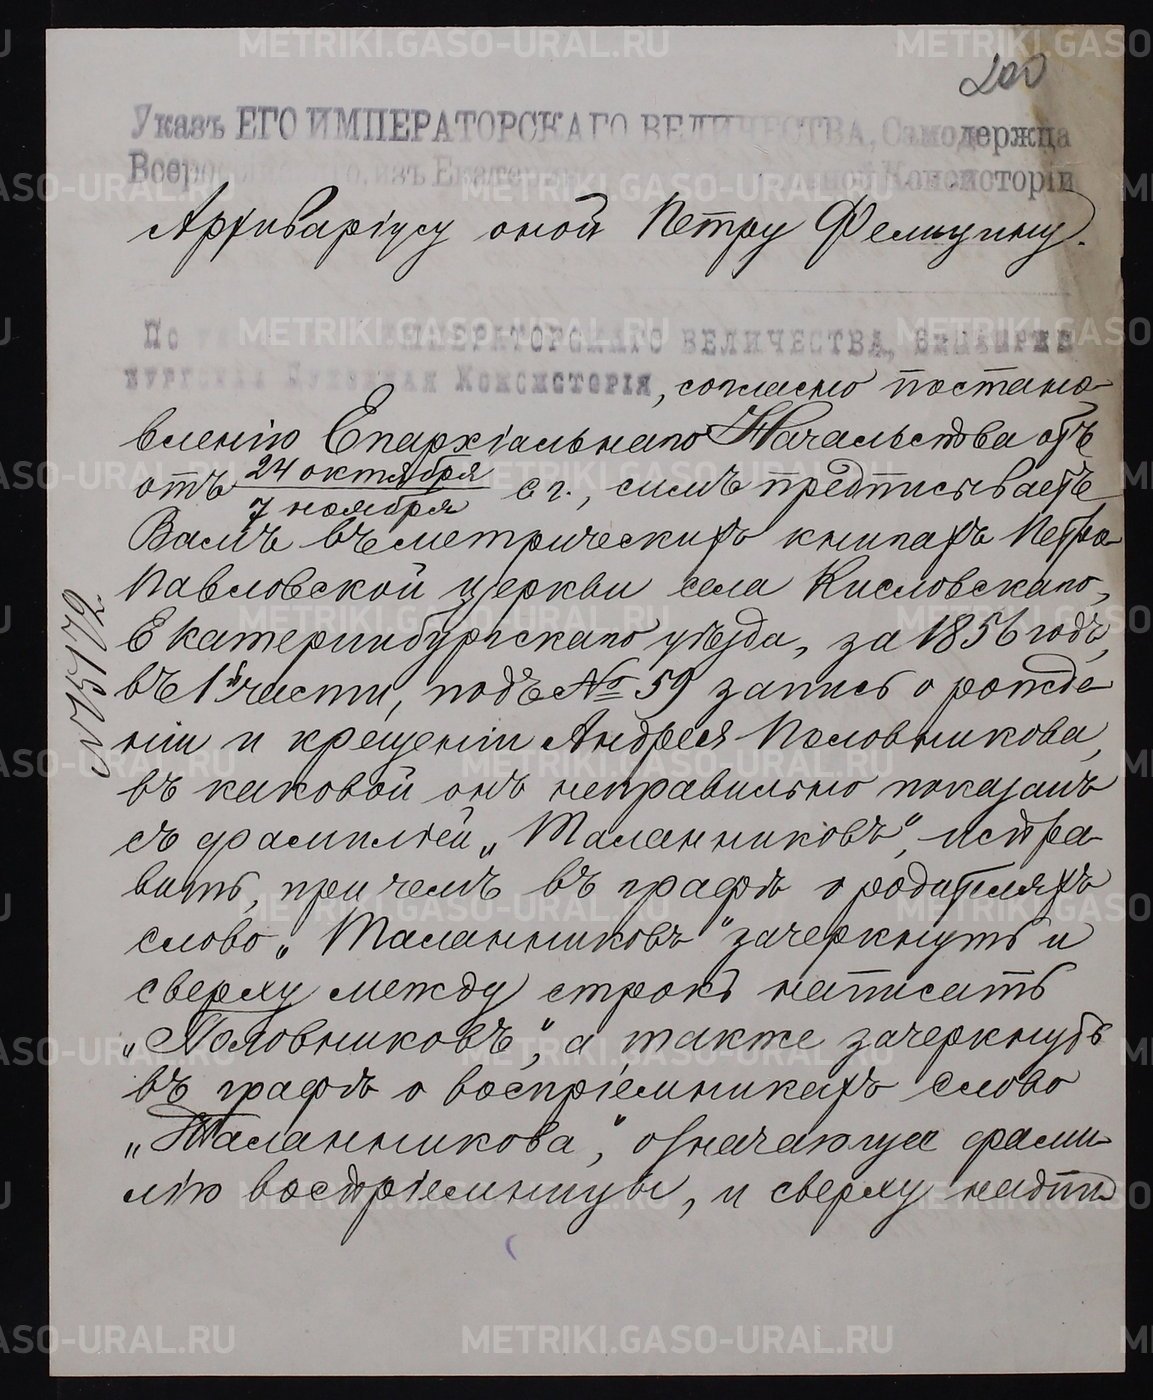 200
Указъ ЕГО ИМПЕРАТОРСКАГО ВЕЛИЧЕСТВА, Самодержца
Всероссійскаго, изъ Екатерин Консисторіи
Архиваріусу оной Петру
По ИМПЕРАТОРСКАГО ВЕЛИЧЕСТВА, Екатерин
бургская Духовная Консисторія, согласно постано-
вленію Епархіальнаго Начальства отъ
отъ 24 октября
7 ноября с г., симъ предписываетъ
Вамъ въ метрическихъ книгахъ Петро-
Павловской церкви села Кисловскаго,
Екатеринбургскаго уѣзда, за 1856 годъ,
въ 1й части, подъ № 59 запись о рожде-
ніи и крещеніи Андрея Половникова,
въ каковой онъ неправильно показанъ
съ фамиліей „Таланниковъ“, испра-
вить, при чемъ въ графѣ о родителяхъ
слово „Таланниковъ“ зачеркнуть и
сверху между строкъ написать
„Половниковъ“, а также зачеркнуть
въ графѣ о воспріемникахъ слово
„Таланникова“, означающее фами-
лію воспріемницы, и сверху надпи-
№ 15172.
METRIKI.GASO-URAL.RU